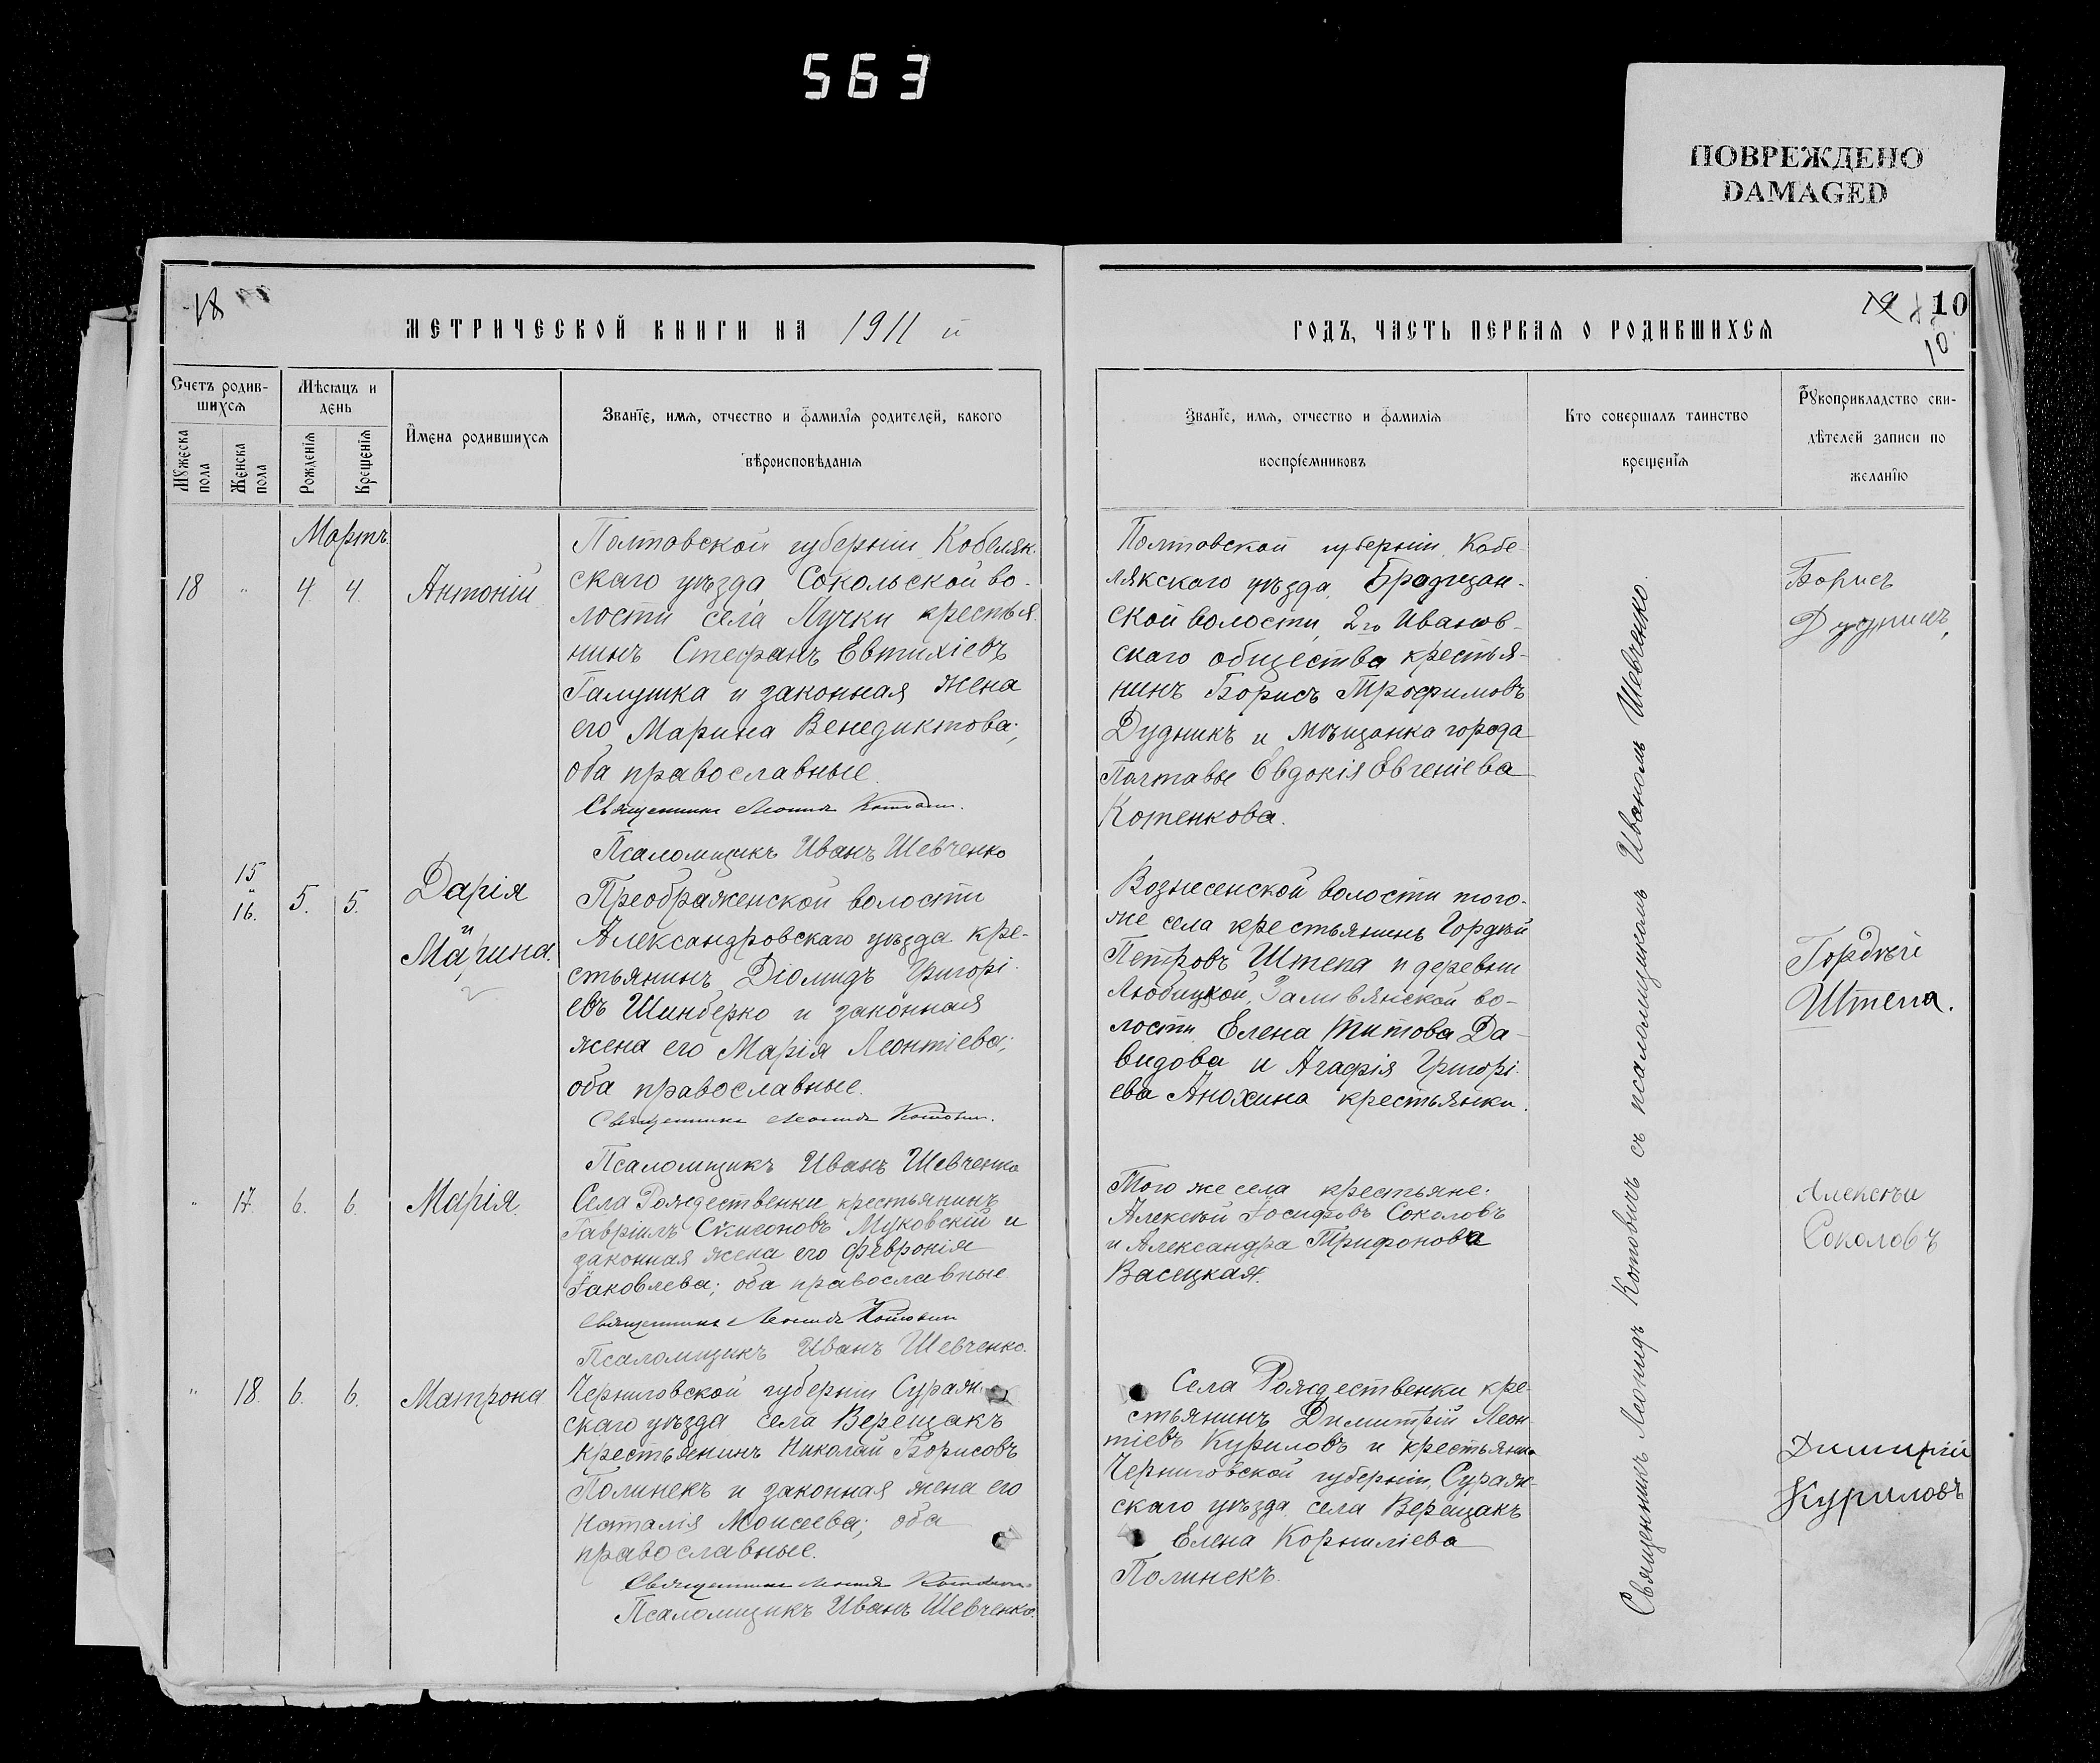 563
ПОВРЕЖДЕНО
DAMAGED
18
МЕТРИЧЕСКОЙ КНИГИ НА 1911 й
Счетъ родив-
шихся
Мѣсяцъ и
день
Мужеска
пола
Женска
пола
Рожденія
Крещенія
Имена родившихся
Званіе, имя, отчество и фамилія родителей, какого
вѣроисповѣданія
Мартъ
18 " 4. 4. Антоній
Полтавской губерніи Кобеляк-
скаго уѣзда, Сокольской во-
лости села Лучки крестья-
нинъ Стефанъ Евтихіевъ
Галушка и законная жена
его Марина Венедиктова;
оба православные.
Священникъ Леонидъ Котовичъ.
Псаломщикъ Иванъ Шевченко
15
и
16. 5. 5. Дарія
и
Марина.
Преображенской волости
Александровскаго уѣзда кре-
стьянинъ Діомидъ Григорі-
евъ Шинберко и законная
жена его Марія Леонтіева;
оба православные.
Священникъ Леонидъ Котовичъ.
Псаломщикъ Иванъ Шевченко
" 17. 6. 6. Марія.
Села Рождественки крестьянинъ
Гавріилъ Симеоновъ Муковскій и
законная жена его Февронія
Іаковлева; оба православные.
Священникъ Леонидъ Котовичъ
Псаломщикъ Иванъ Шевченко.
" 18. 6. 6. Матрона
Черниговской губерніи Сураж-
скаго уѣзда села Верещакъ
крестьянинъ Николай Борисовъ
Полинекъ и законная жена его
Наталія Моисеева; оба
православные.
Священникъ Леонидъ Котовичъ
Псаломщикъ Иванъ Шевченко.
19 10
10
ГОДЪ, ЧАСТЬ ПЕРВАЯ О РОДИВШИХСЯ
Званіе, имя, отчество и фамилія
воспріемниковъ
Кто совершалъ таинство
крещенія
Рукоприкладство сви-
дѣтелей записи по
желанію
Полтавской губерніи, Кобе-
лякскаго уѣзда,
ской волости, 2го Иванов-
скаго общества крестья-
нинъ Борисъ Трофимовъ
Дудникъ и мѣщанка города
Полтавы Евдокія Евгеніева
Котенкова.
Борисъ
Дудникъ
Вознесенской волости того-
же села крестьянинъ Гордѣй
Петровъ Штепа и деревни
Любицкой, Заливянской во-
лости Елена Титова Да-
видова и Агафія Григорі-
ева Анохина крестьянки.
Гордѣй
Штепа.
Того же села крестьяне:
Алексѣй Іосифовъ Соколовъ
и Александра Трифонова
Васецкая.
Алексѣй
Соколовъ
Села Рождественки кре-
стьянинъ Димитрій Леон-
тіевъ Куриловъ и крестьянка
Черниговской губерніи, Сураж-
скаго уѣзда, села Верещакъ
Елена Корниліева
Полинекъ.
Димитрій
Куриловъ
Священникъ Леонидъ Котовичъ съ псаломщикомъ Иваномъ Шевченко.